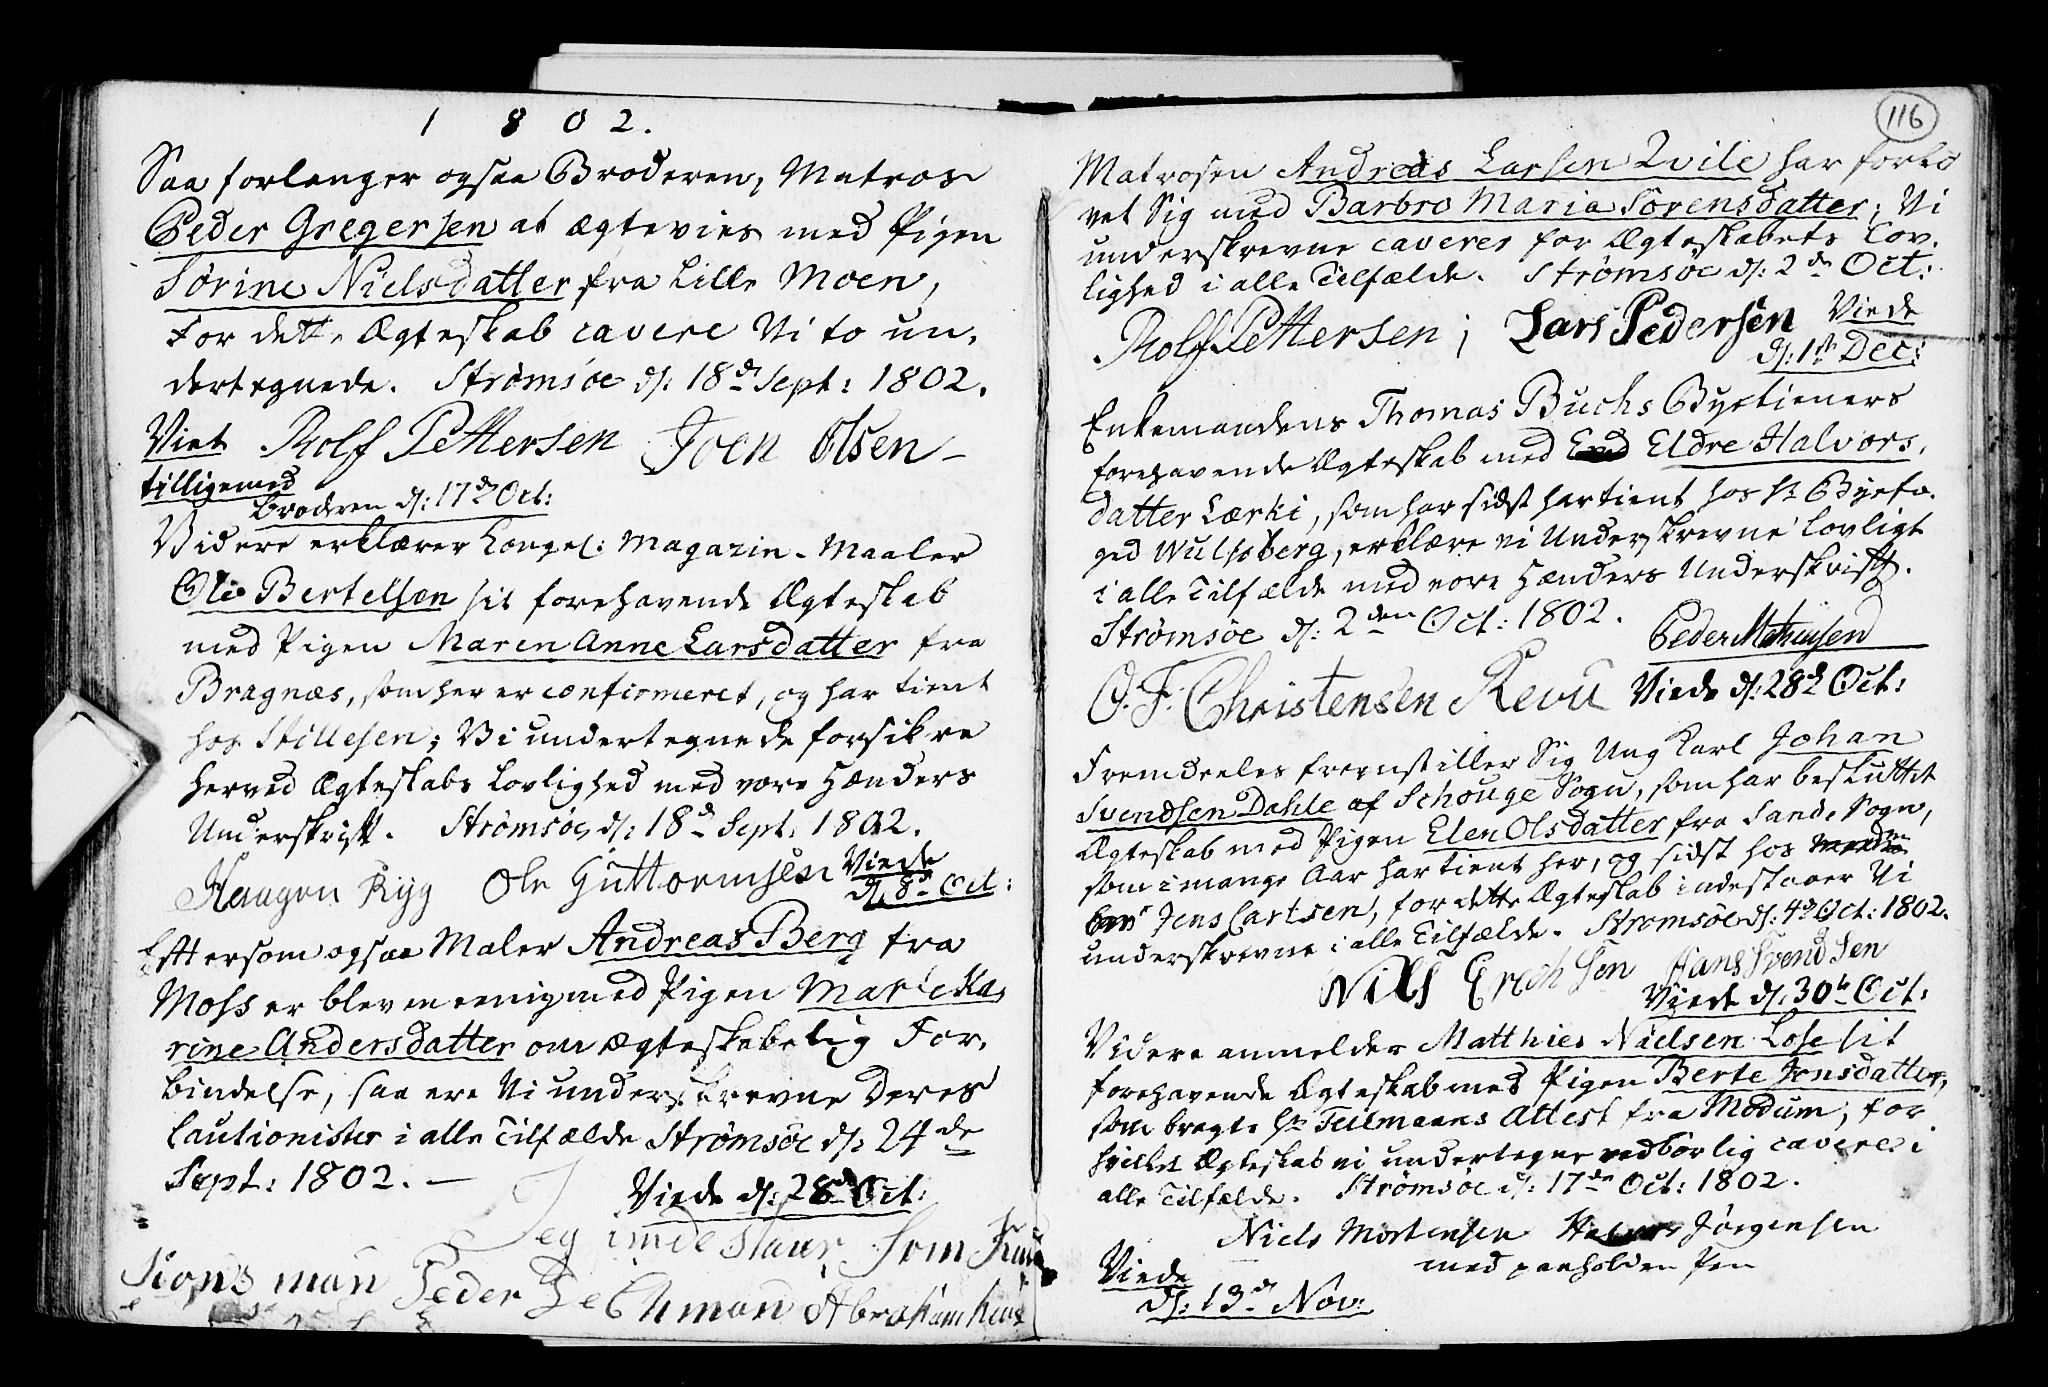 1802.
Saa forlanger ogsaa Broderen, Matros
Peder Gregersen at ægtevies med Pigen
Sørine Nielsdatter fra Lille Moen,
For dette Ægteskab cavere Vi to un,
dertegnede. Strømsøe d: 18de Sept: 1802.
Viet Rolf Pettersen Joen Olsen
tilligemed
Broderen d: 17de Oct:
Videre erklærer Kongel: Magazin-Maaler
Ole Bertelsen sit forehavende Ægteskab
med Pigen Maren Anne Larsdatter fra
Bragnæs, som her er confirmeret, og har tient
hos Stillesen; Vi undertegnede forsikre
herved Ægteskabs Lovlighed med vore Hænders
Underskrift. Strømsøe d: 18d Sept: 1802.
Haagen Ryg Ole Guttormsen Viede
d: 8d Oct:
Eftersom ogsaa Maler Andreas Berg fra
Moss er bleven eenig med Pigen Marte Ka,
rine Andersdatter om ægteskabelig For,
bindelse, saa ere Vi underskrevne Deres
Cautionister i alle Tilfælde Strømsøe d: 24de
Sept: 1802. —
Viede d: 28d Oct:
Jeg indestaar som
man Peder Abraham
116
Matrosen Andreas Larsen Qvile har forlo
vet Sig med Barbro Maria Sørensdatter; Vi
underskrevne caverer for Ægteskabets Lov,
lighed i alle Tilfælde. Strømsøe d: 2de Oct:
Rolf Pettersen; Lars Pedersen Viede
d: 1ste Dec:
Enkemandens Thomas Buchs Byetieners
forehavende Ægteskab med Eldre Halvors,
datter Lærki, som har sidst har tient hos Hr Byefo,
ged Wulfsberg, erklære vi Underskrevne lovligt
i alle Tilfælde med vore Hænders Underskrift.
Strømsøe d: 2den Oct: 1802.
Peder Mathisen
O. F. Christensen Revu Viede d: 28d Oct:
Fremdeeles fremstiller Sig Ung Karl Johan
Svendsen Dahle af Schouge Sogn, som har besluttet
Ægteskab med Pigen Elen Olsdatter fra Sande Sogn,
som i mange Aar har tient her, og sidst hos
Jens Carlsen, for dette Ægteskab indestaaer Vi
underskrevne i alle Tilfælde. Strømsøe d: 4d Oct: 1802.
Nils Erichsen Hans Svendsen
Viede d: 30te Oct:
Videre anmelder Matthies Nielsen Lose sit
forehavende Ægteskab med Pigen Berte Jonsdatter,
som bragte Hr Teilmanns Attest fra Modum; for
hvilket Ægteskab vi undertegne vedbørlig cavere i
alle Tilfælde. Strømsøe d: 17de Oct: 1802.
Niels Mortensen Halvor Jørgensen
med paaholden Pen
Viede
d: 13d Nov: